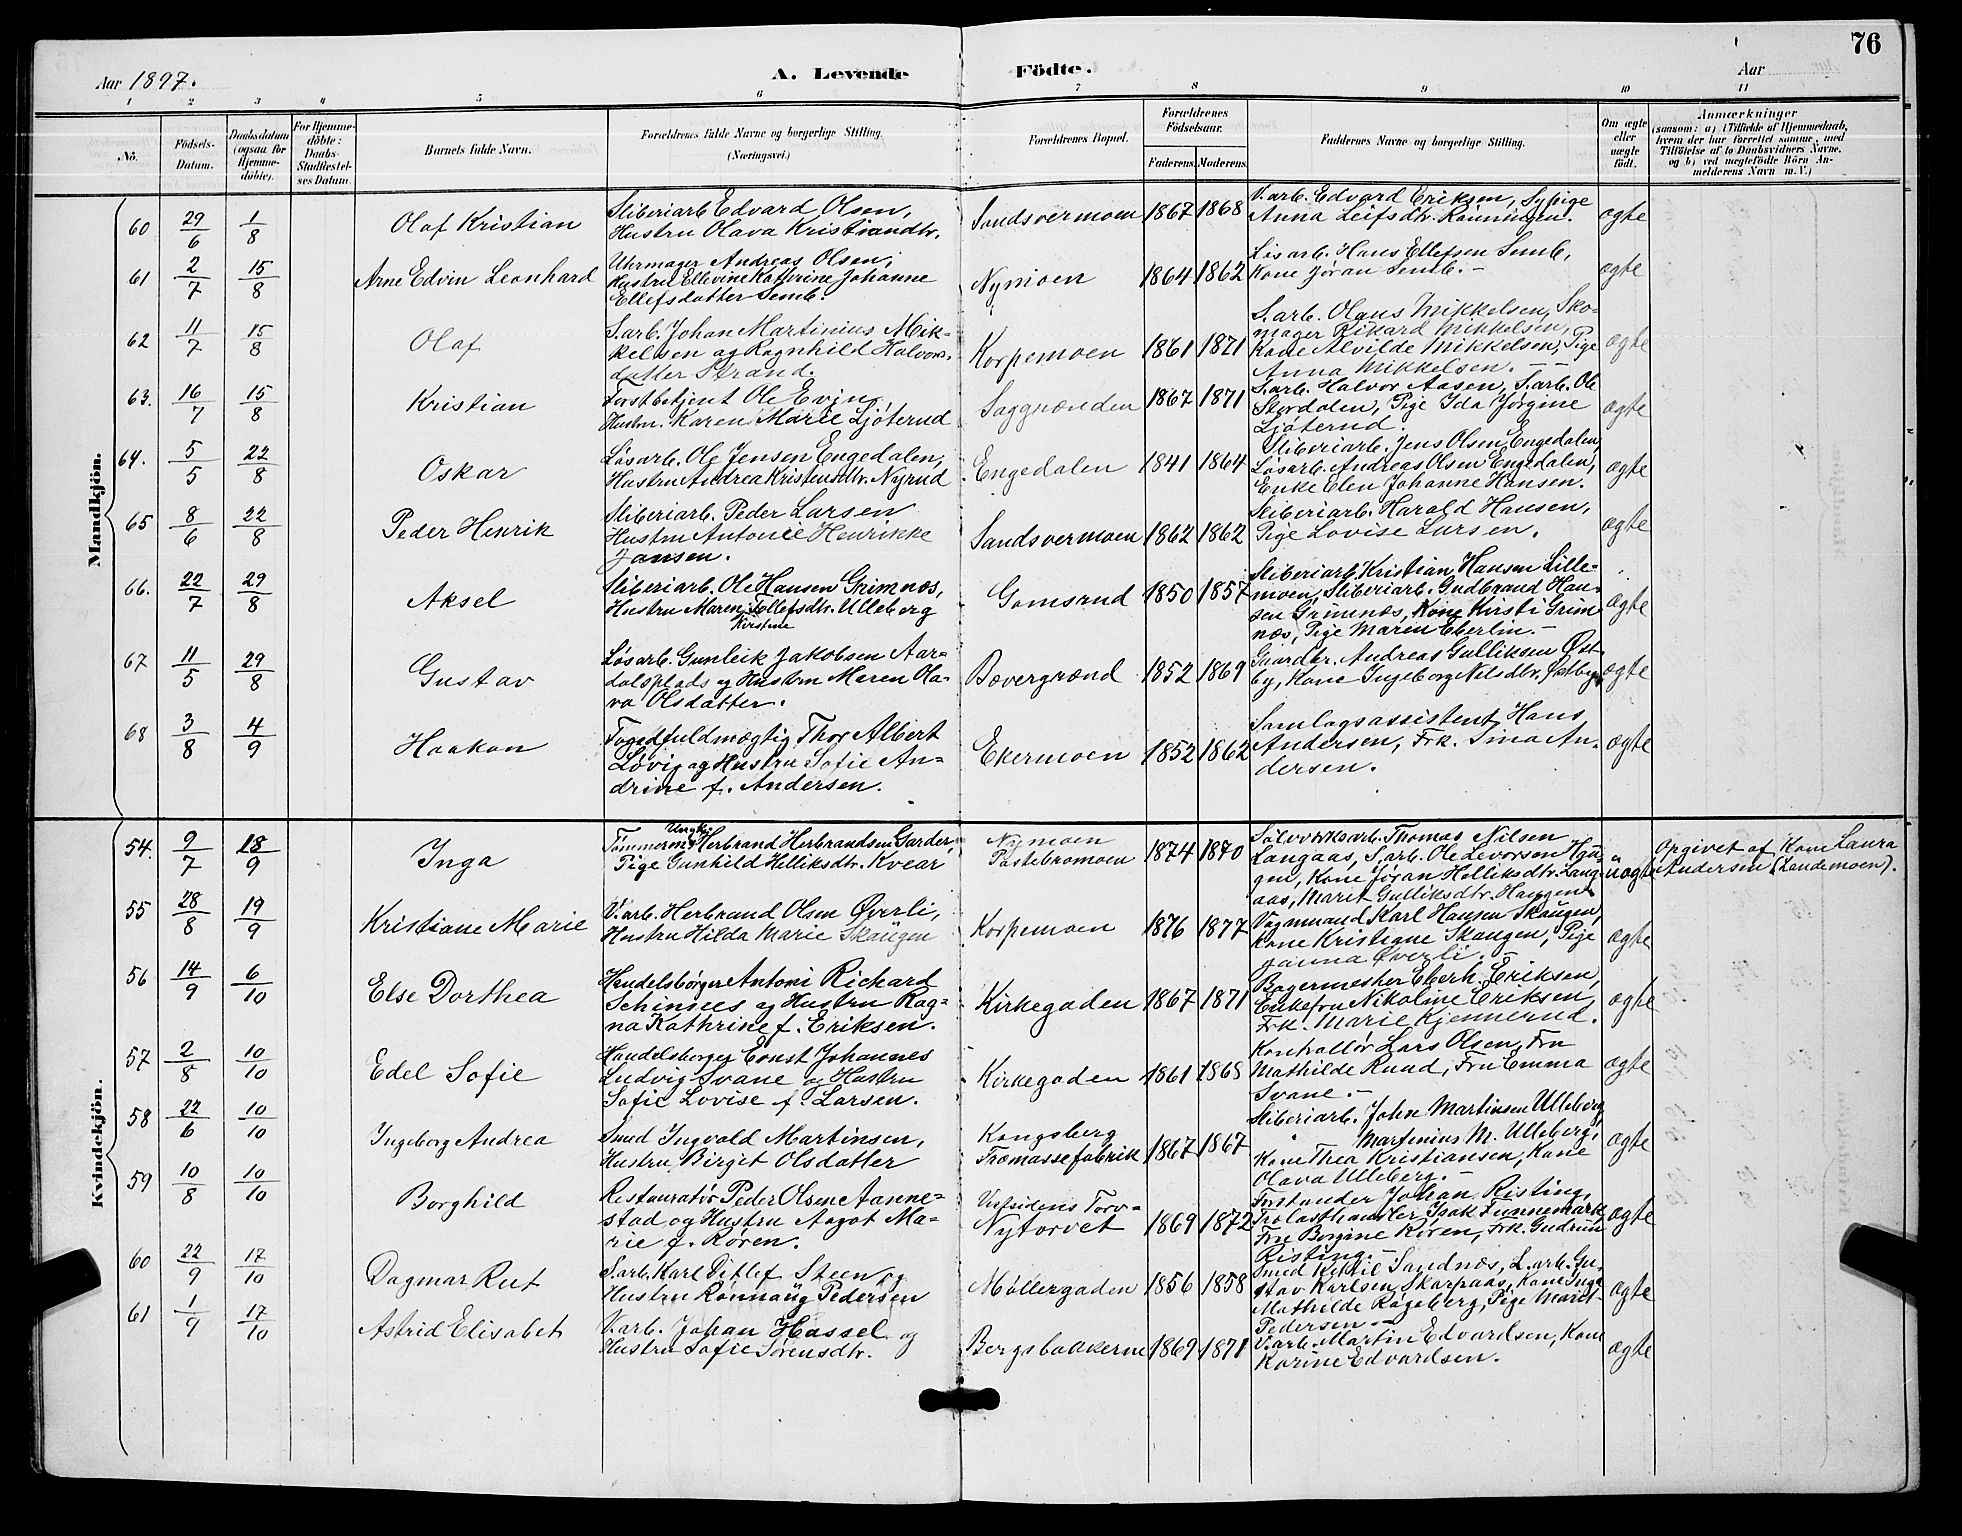 76
Aar 1897.
A. Levende Födte.
Aar
1 2 3 4 5 6 7 8 9 10 11
No.
Födsels-
Datum.
Daabsdatum
(ogsaa for
Hjemme-
döbte).
For Hjemme-
döbte:
Daabs-
Stadfæstel-
ses Datum.
Barnets fulde Navn.
Forældrenes fulde Navne og borgerlige Stilling.
(Næringsvei.)
Forældrenes Bopæl.
Forældrenes
Födselsaar.
Faderens. Moderens.
Faddernes Navne og borgerlige Stilling.
Om ægte
eller
uægte
födt.
Anmærkninger
(saasom: a) i Tilfælde af Hjemmedaab,
hvem der har forrettet samme, med
Tilföielse af to Daabsvidners Navne,
og b) ved uægtefödte Börn An-
melderens Navn m. V.)
Mandkjön.
60 29/6 1/8 Olaf Kristian
Sliberiarb Edvard Olsen,
Hustru Olava Kristiandtr.
Sandsvermoen 1867 1868
V.arb. Edvard Eriksen, Sypige
Anna Leifsdtr. Rønningen.
ægte
61 2/7 15/8 Arne Edvin Leonhard
Uhrmager Andreas Olsen,
Hustru Ellevine Kathrine Johanne
Ellefsdatter Semb.
Nymoen 1864 1862
Løsarb. Hans Ellefsen Semb,
Kone Jøran Semb. -
ægte
62 11/7 15/8 Olaf
S.arb. Johan Martinius Mik-
kelsen og Ragnhild Halvors-
datter Strand.
Korpemoen 1861 1871
S.arb. Olaus Mikkelsen, Sko-
mager Rikard Mikkelsen,
Kone Alvilde Mikkelsen, Pige
Anna Mikkelsen. -
ægte
63. 16/7 15/8 Kristian
Forstbetjent Ole Evju,
Hustru Karen Marie Ljøterud
Saggrænden 1867 1871
S.arb. Halvor Aasen, S.arb. Ole
Stordalen, Pige Ida Jørgine
Ljøterud.
ægte
64. 5/5 22/8 Oskar
Løsarb. Ole Jensen Engedalen,
Hustru Andrea Kristensdtr. Nyrud
Engedalen 1841 1864
Sliberiarb. Jens Olsen Engedalen,
Løsarb. Andreas Olsen Engedalen,
Enke Elen Johanne Hansen.
ægte
65 8/6 22/8 Peder Henrik
Sliberiarb. Peder Larsen
Hustru Antonie Henrikke
Jansen.
Sandsvermoen 1862 1862
Sliberiarb. Harald Hansen,
Pige Lovise Larsen.
ægte
66. 22/7 29/8 Aksel
Sliberiarb. Ole Hansen Grimnæs,
Hustru Maren Tollefsdtr. Ulleberg
Kirstine
Gomsrud 1850 1857
Sliberiarb. Kristian Hansen Lille-
moen, Sliberiarb. Gudbrand Han-
sen Grimnæs, Kone Kirsti Grim-
næs, Pige Maren Eberlin. -
ægte
67 11/5 29/8 Gustav
Løsarb. Gunleik Jakobsen Aar-
dalsplads og Hustru Maren Ola-
va Olsdatter.
Bævergrænd 1852 1869
Gaardbr. Andreas Gulliksen Øst-
by, Kone Ingeborg Nilsdtr. Østby.
ægte
68 3/8 4/9 Haakon
Fogedfuldmægtig Thor Albert
Løvig og Hustru Sofie An-
drine f. Andersen.
Ekermoen 1852 1862
Samlagsassistent Hans
Andersen, Frk. Sina An-
dersen.
ægte
Kvindekjön.
54. 9/7 18/9 Inga
Ungk.
Tømmerm. Herbrand Herbrandsen Garder,
Pige Gunhild Helliksdtr. Kvear
Nymoen
Pastebromoen 1874 1870
Sølvværksarb. Thomas Nilsen
Langaas, S.arb. Ole Levorsen Hau-
gen, Kone Jøran Helliksdtr. Lang-
aas, Marit Gulliksdtr. Haugen.
uægte
Opgivet af Kone Laura
Andersen (Landemoen).
55 28/8 19/9 Kristiane Marie
V.arb. Herbrand Olsen Øverli,
Hustru Hilda Marie Skaugen
Korpemoen 1876 1877
Vognmand Karl Hansen Skaugen,
Kone Kristiane Skaugen, Pige
Janna Øverli. -
ægte
56 14/9 6/10 Else Dorthea
Handelsborger Antoni Richard
Schinnes og Hustru Rag-
na Kathrine f. Eriksen.
Kirkegaden 1867 1871
Bagermester Eberh. Eriksen,
Enkefru Nikoline Eriksen,
Frk. Marie Kjennerud.
ægte
57 2/8 10/10 Edel Sofie
Handelsborger Ernst Johannes
Ludvig Svane og Hustru
Sofie Lovise f. Larsen.
Kirkegaden 1861 1868
Kontrollør Lars Olsen, Fru
Mathilde Ruud, Fru Emma
Svane. -
ægte
58 22/6 10/10 Ingeborg Andrea
Smed Ingvald Martinsen,
Hustru Birget Olsdatter
Kongsberg
Træmassefabrik 1867 1867
Sliberiarb. John Martinsen Ulleberg,
" Martinius M. Ulleberg,
Kone Thea Kristiansen, Kone
Olava Ulleberg. -
ægte
59 10/8 10/10 Borghild
Restauratør Peder Olsen Aanne-
stad og Hustru Aagot Ma-
rie f. Røren.
Vestsidens Torv -
Nytorvet 1869 1872
Forstander Johan Risting,
Trælasthandler Isak Funnemark,
Fru Borgine Røren, Frk. Gudrun
Risting. -
ægte
60 22/9 17/10 Dagmar Rut
S.arb. Karl Ditlef Steen og
Hustru Rønnaug Pedersen
Møllergaden 1856 1858
Smed Kittil Sandnæs, L.arb. Gu-
stav Karlsen Skarpaas, Kone Inga
Mathilde Rogeberg, Pige Marit
Pedersen. -
ægte
61 1/9 17/10 Astrid Elisabet
V.arb. Johan Hassel og
Hustru Sofie Sørensdtr.
Bergsbakkerne 1869 1871
V.arb. Martin Edvardsen, Kone
Karine Edvardsen.
ægte